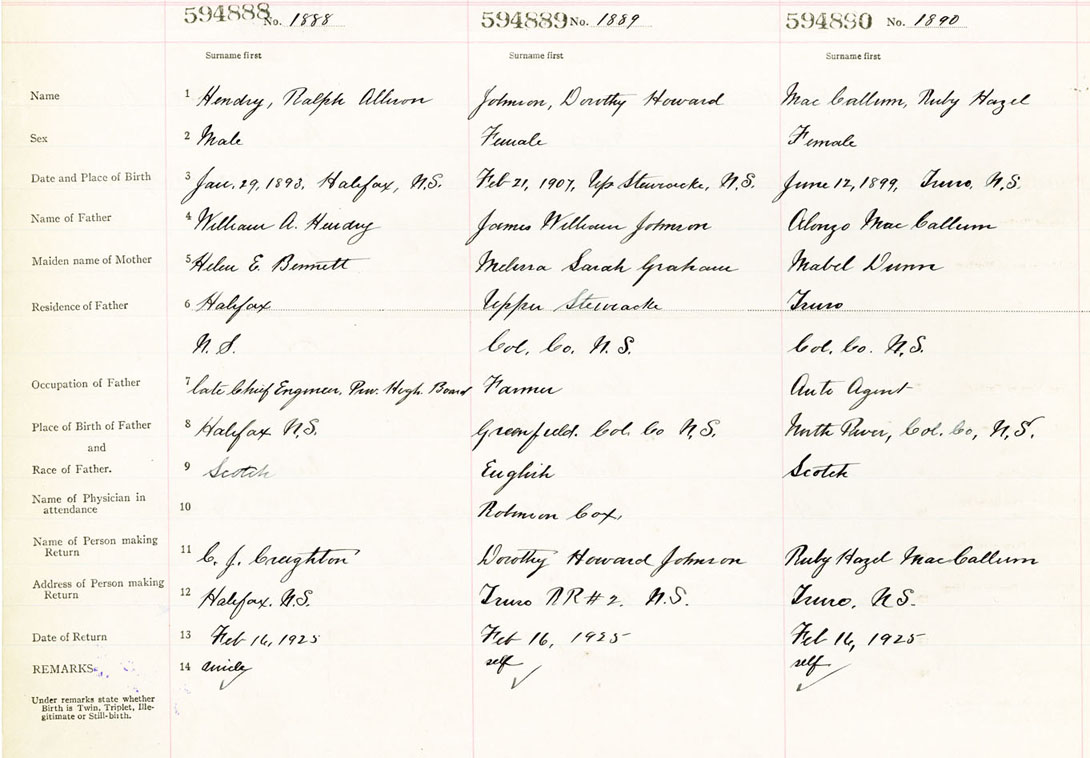 594888 No. 1888 594889 No. 1889 594890 No. 1890
Surname first Surname first Surname first
Name 1 Hendry, Ralph Allison Johnson, Dorothy Howard Mac Callum, Ruby Hazel
Sex 2 Male Female Female
Date and Place of Birth 3 Jan. 29, 1893, Halifax, N.S. Feb 21, 1907, Up Stewiacke, N.S. June 12, 1899, Truro, N.S.
Name of Father 4 William A. Hendry James William Johnson Alonzo Mac Callum
Maiden name of Mother 5 Helen E. Bennett Melissa Sarah Graham Mabel Dunn
Residence of Father 6 Halifax Upper Stewiacke Truro
N.S. Col. Co. N.S. Col. Co. N.S.
Occupation of Father 7 late Chief Engineer, Prov. High. Board Farmer Auto Agent
Place of Birth of Father 8 Halifax N.S. Greenfield. Col. Co N.S. North River, Col. Co, N.S.
and
Race of Father. 9 Scotch English Scotch
Name of Physician in
attendance 10 Robinson Cox,
Name of Person making
Return 11 C. J. Creighton Dorothy Howard Johnson Ruby Hazel MacCallum
Address of Person making
Return 12 Halifax. N.S. Truro RR # 2. N.S. Truro. N.S.
Date of Return 13 Feb 16, 1925 Feb 16, 1925 Feb 16, 1925
REMARKS 14 uncle self self
Under remarks state whether
Birth is Twin, Triplet, Ille-
gitimate or Still-birth.